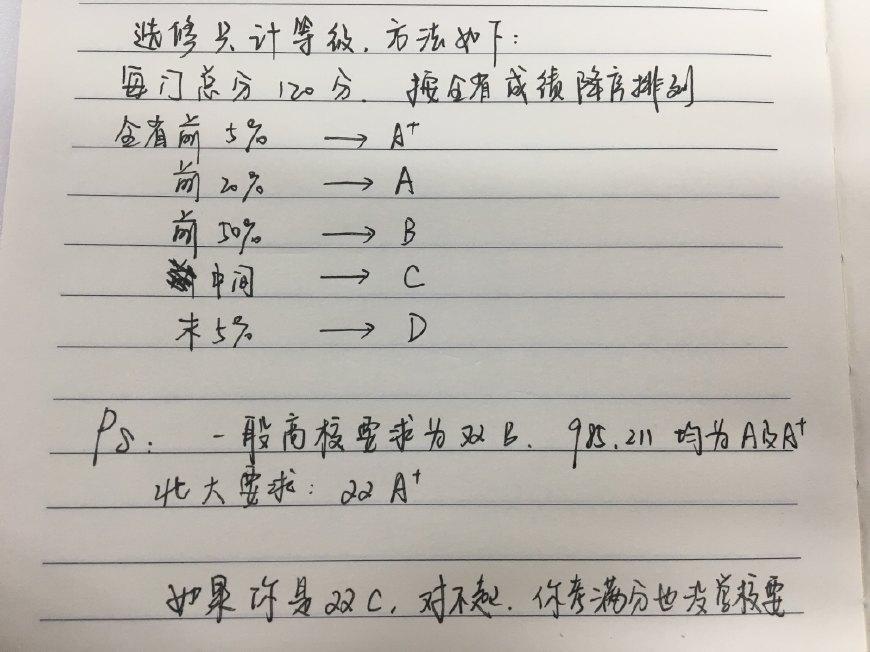 选修只计等级，方法如下：
每门总分120分，按全省成绩降序排列
全省前 5% → A+
前 20% → A
前 50% → B
中间 → C
末5% → D
PS：一般高校要求为双B．985.211 均为A及A+
北大要求：双A+
如果你是双C，对不起．你考满分也没学校要